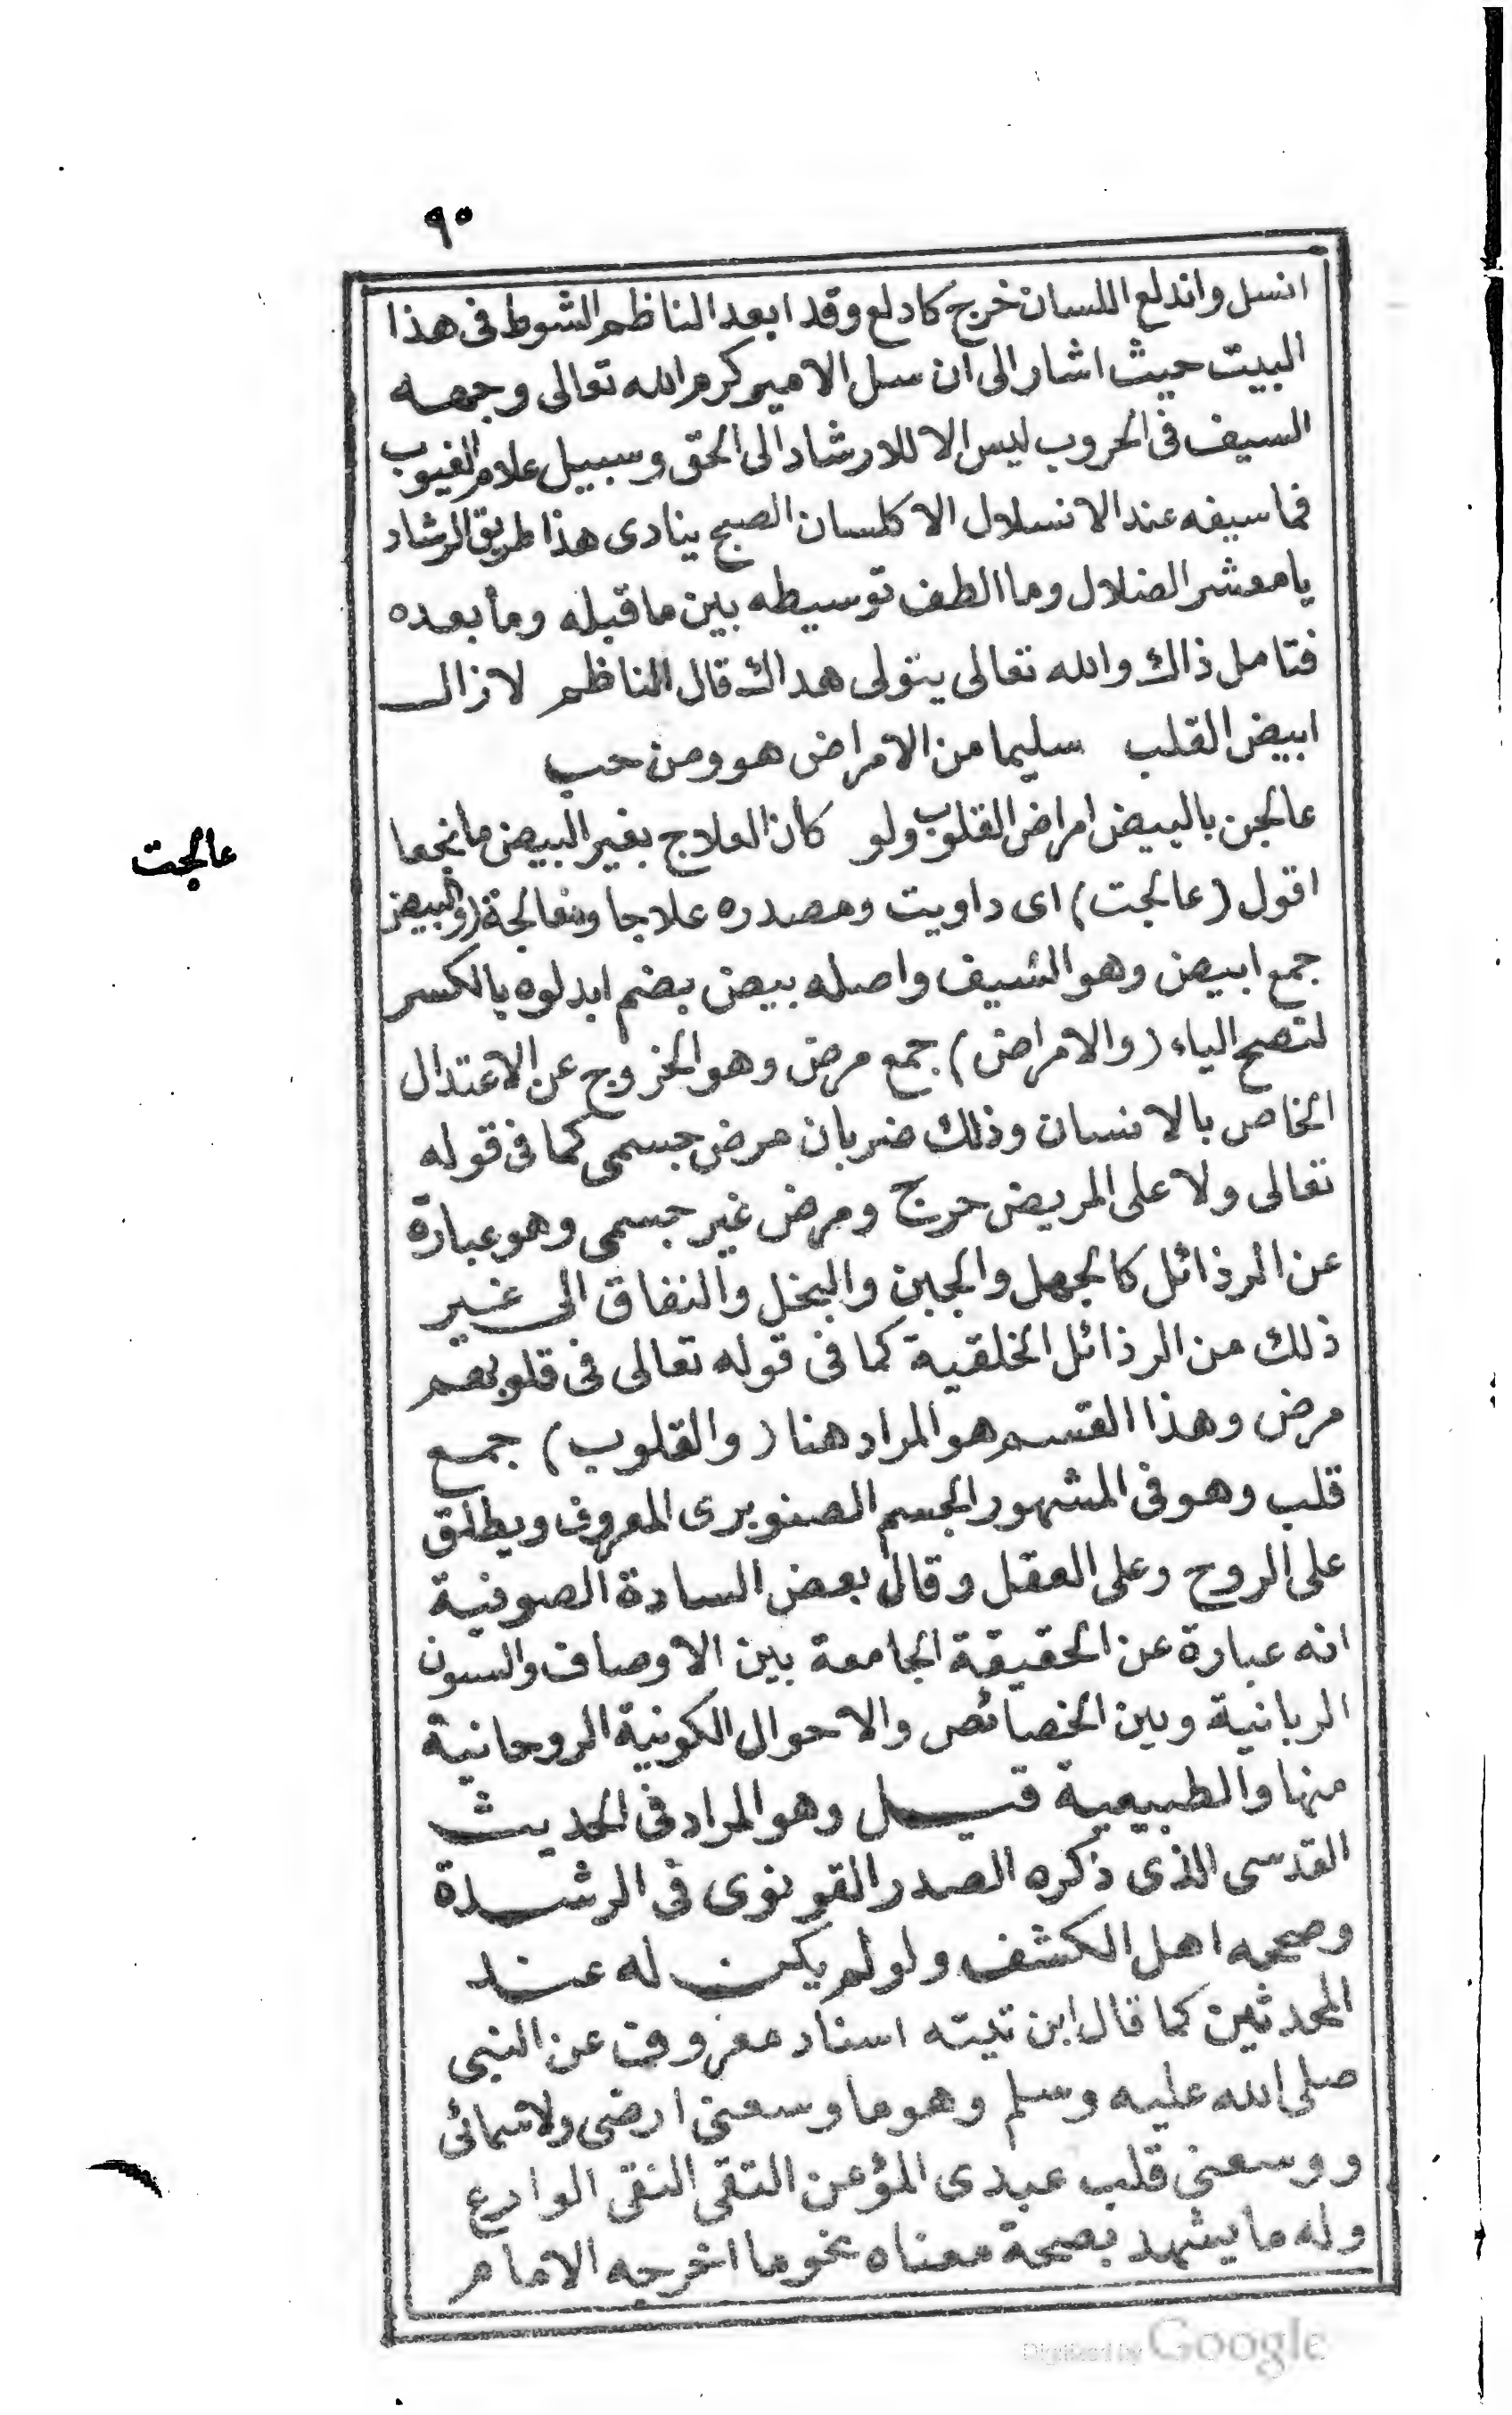 ٩٠
انسل واندلع اللسان خرج كادلع وقد ابعد الناظم الشوط فى هذا
البيت حيث اشار الى ان سل الامير كرم الله تعالى وجهه
السيف فى الحروب ليس الا للارشاد الى الحق وسبيل علام الغيوب
فما سيفه عند الانسلال الا كلسان الصبح ينادى هذا طريق الرشاد
يا معشر الضلال وما الطف توسيطه بين ما قبله وما بعده
فتامل ذاك والله تعالى يتولى هداك قال الناظم لازال
ابيض القلب سليما من الامراض هو ومن حب
عالجن بالبيض امراض القلوب ولو كان العلاج بغير البيض ما نجعا
عالجت
اقول (عالجت) اى داويت ومصدره علاجا ومعالجة (والبيض
جمع ابيض وهو السيف واصله بيض بضم ابدلوه بالكسر
لتصح الياء (والامراض) جمع مرض وهو الخروج عن الاعتدال
الخاص بالانسان وذلك ضربان مرض جسمى كما فى قوله
تعالى ولا على المريض حرج ومرض غير جسمى وهو عبارة
عن الرذائل كالجهل والجبن والبخل والنفاق الى غير
ذلك من الرذائل الخلقية كما فى قوله تعالى فى قلوبهم
مرض وهذا القسم هو المراد هنا (والقلوب) جمع
قلب وهو فى المشهور الجسم الصنوبرى المعروف ويطلق
على الروح وعلى العقل وقال بعض السادة الصوفية
انه عبارة عن الحقيقة الجامعة بين الاوصاف والسون
الربانية وبين الخصائص والاحوال الكونية الروحانية
منها والطبيعية قيل وهو المراد فى الحديث
القدسى الذى ذكره الصدر القونوى فى الرشدة
وصححه اهل الكشف ولو لم يكن له عند
المحدثين كما قال ابن تيته اسناد معروف عن النبى
صلى الله عليه وسلم وهو ما وسعنى ارضى ولا سمائى
ووسعنى قلب عبدى المؤمن التقى النقى الوادع
وله ما يشهد بصحة معناه نحو ما اخرجه الامام
Digitized by Google